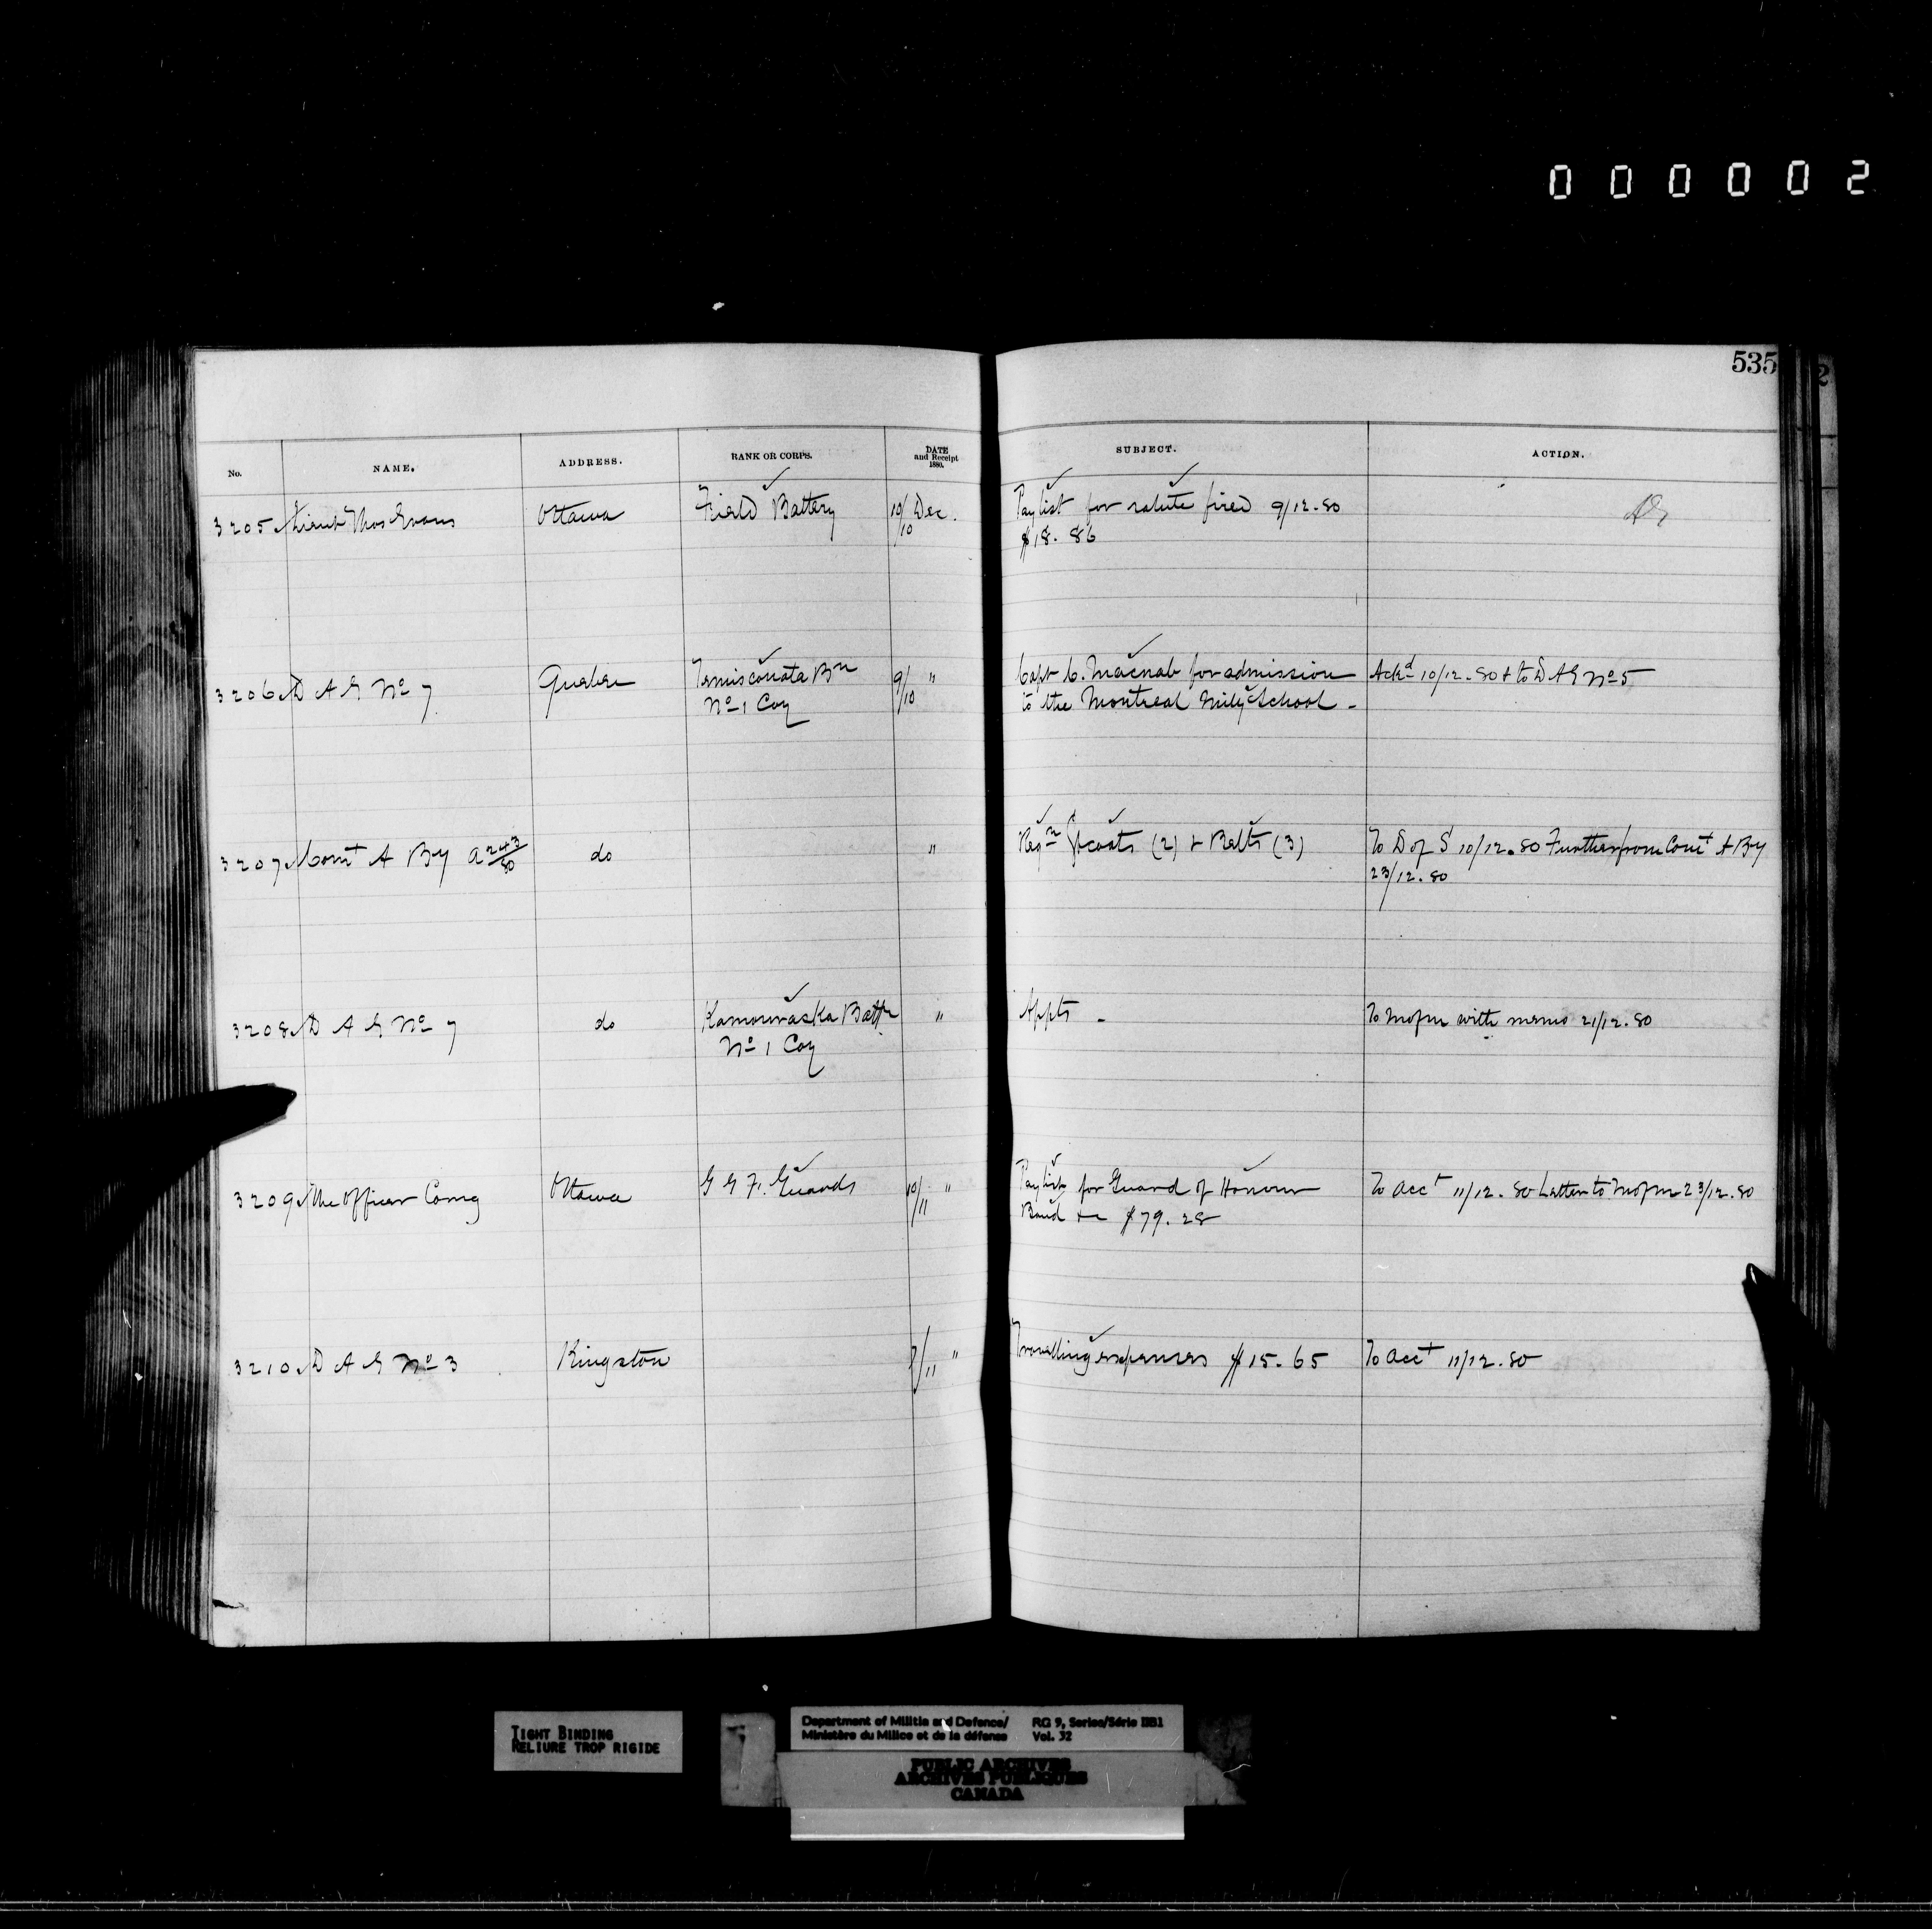 000002
535
2
No. NAME. ADDRESS. RANK OR CORPS. DATE and Receipt 1880. SUBJECT. ACTION.
3205 Lieut Thos Evans Ottawa Field Battery 10/10 Dec. Paylist for salute fired 9/12.80
$18.86
3206 D A G No 7 Quebec Temiscouata Bn 9/10 " Capt C. Macnab for admission Ackd 10/12.80 & to D A G No 5
No 1 Coy to the Montreal Mily School -
3207 Comt A By A 243/80 do " Reqn Gtcoats (2) & Belts (3) To D of S 10/12.80 Further from Comt A By
23/12.80
3208 D A G No 7 do Kamouraska Battn " Appts - To Mofm with memo 21/12.80
No 1 Coy
3209 The Officer Comg Ottawa G G F. Guards 10/11 " Paylist for Guard of Honour To Acct 11/12.80 Letter to Mofm 23/12.80
Band &c $79.28
3210 D A G No 3 Kingston /11 " Travelling expenses $15.65 To Acct 11/12.80
TIGHT BINDING
RELIURE TROP RIGIDE
Department of Militia and Defence/ RG 9, Series/Série IIB1
Ministère du Milice et de la défense Vol. 32
PUBLIC ARCHIVES
ARCHIVES PUBLIQUES
CANADA